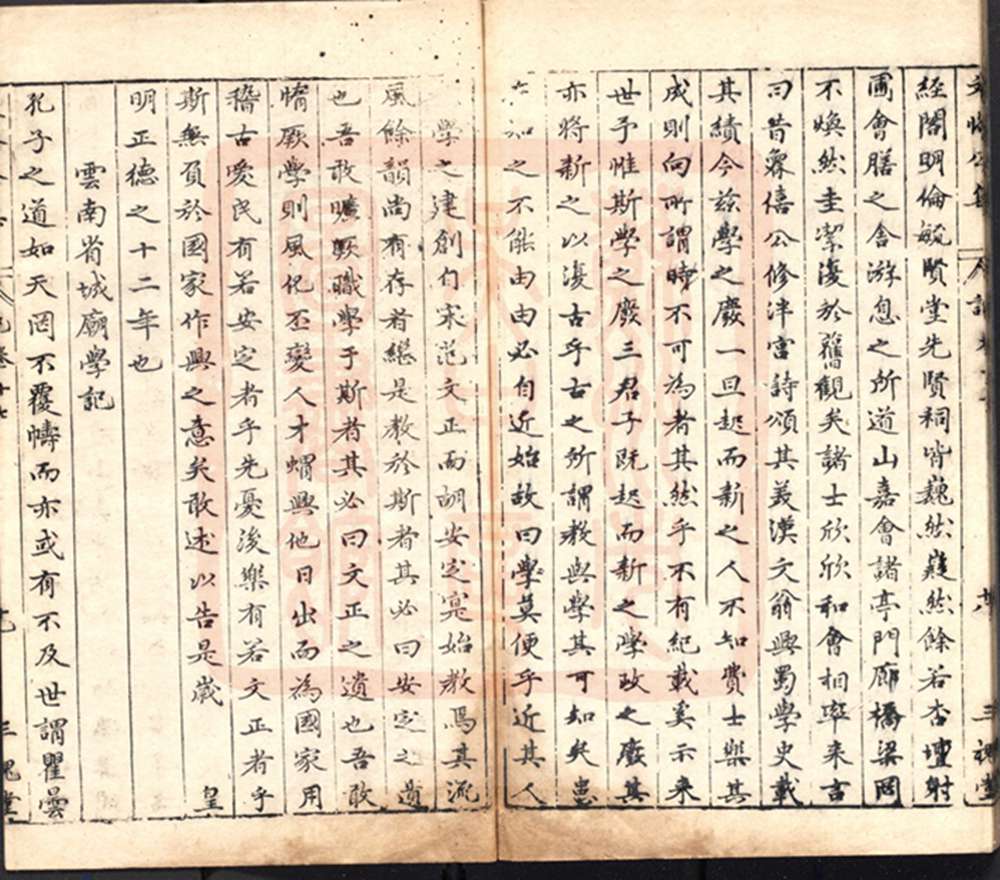 經閣明倫毓賢堂先賢祠皆巍然嶷然餘若杏壇射
圃會膳之舍游息之所道山嘉會諸亭門廊橋梁罔
不煥然圭潔復於舊觀矣諸士欣欣和會相率来言
曰昔魯僖公修泮宮詩頌其美漢文翁興蜀學史載
其績今茲學之廢一旦起而新之人不知費士樂其
成則向所謂時不可為者其然乎不有紀載奚示来
世予惟斯學之廢三君子既起而新之學政之廢其
亦将新之以復古乎古之所謂教與學其可知矣思
知之不能由由必自近始故曰學莫便乎近其人
學之建創自宋范文正而胡安定寔始教焉其流
風餘韻尚有存者繼是教於斯者其必曰安定之遺
也吾敢曠厥職學于斯者其必曰文正之遺也吾敢
惰厥學則風化丕變人才蝟興他日出而為國家用
稽古愛民有若安定者乎先憂後樂有若文正者乎
斯無負於國家作興之意矣敢述以告是歲 皇
明正德之十二年也
雲南省城廟學記
孔子之道如天罔不覆幬而亦或有不及世謂瞿曇